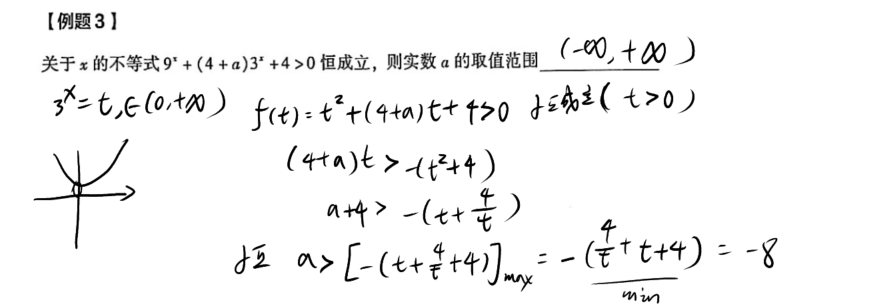 【例题3】
关于 x 的不等式 9ˣ + (4 + a)3ˣ + 4 > 0 恒成立，则实数 a 的取值范围 (-∞, +∞)
3ˣ = t, ∈(0, +∞) f(t) = t² + (4+a)t + 4 > 0 恒成立 (t > 0)
(4+a)t > -(t²+4)
a+4 > -(t + 4/t)
恒 a > [-(t + 4/t + 4)]max = -(4/t + t + 4) = -8
min